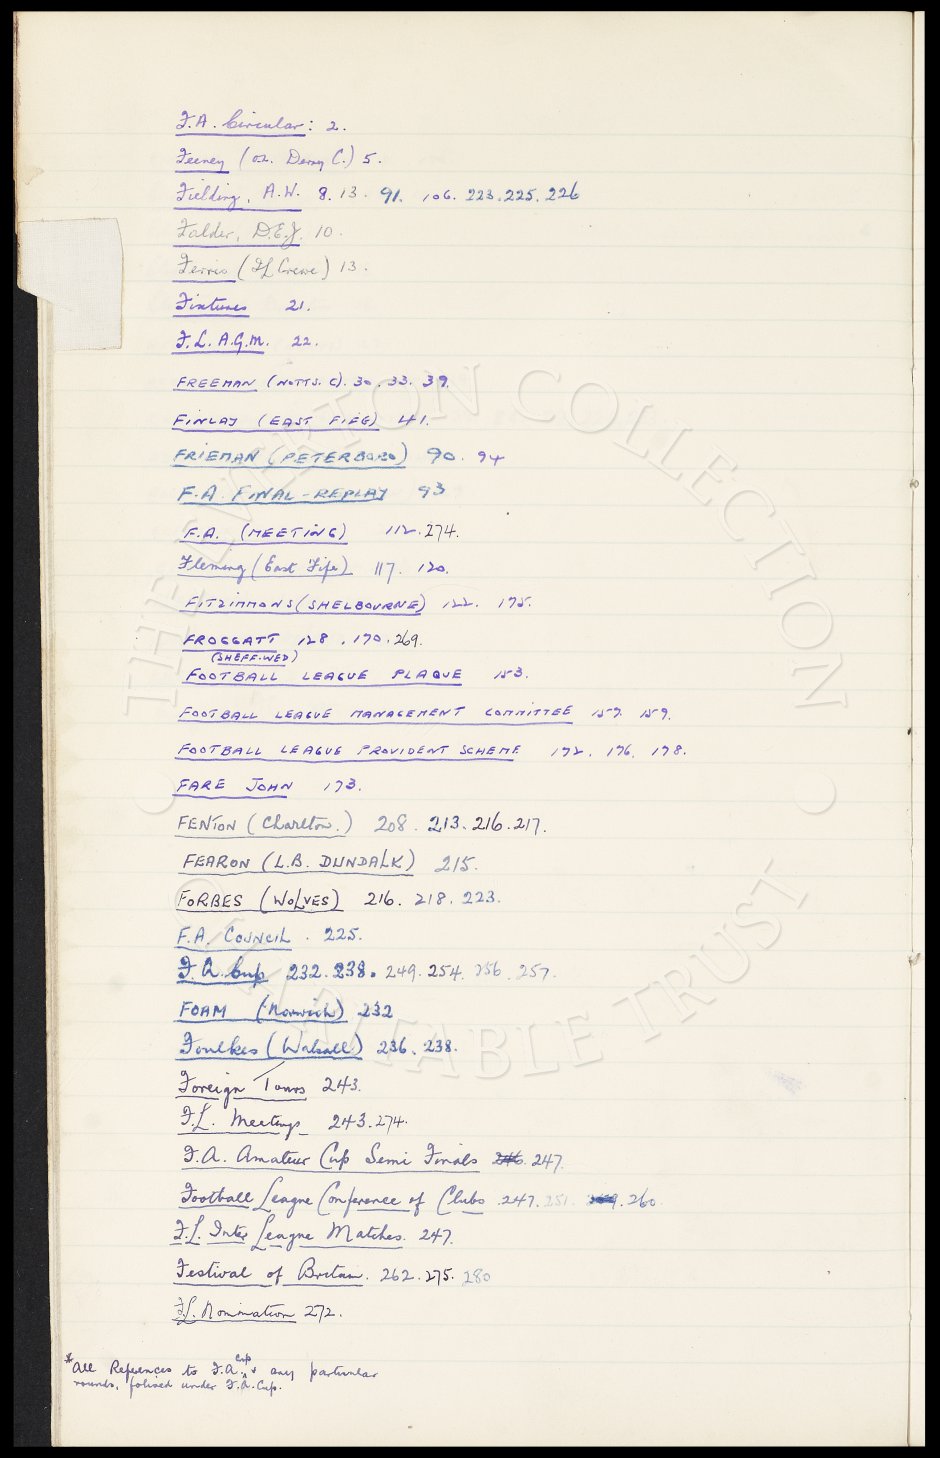 F.A. Circular: 2.
Feeney (O.L. Derry C.) 5.
Fielding, A.W. 8. 13. 91. 106. 223. 225. 226
Falder, D.E.J. 10.
Ferris (FL Crewe) 13.
Fixtures 21.
F.L. A.G.M. 22.
FREEMAN (NOTTS. C). 30. 33. 39.
FINLAY (EAST FIFE) 41.
FRIEMAN (PETERBORO) 90. 94
F.A FINAL-REPLAY 93
F.A. (MEETING) 112. 274.
Fleming (East Fife) 117. 120.
FITZIMMONS (SHELBOURNE) 122. 175.
FROGGATT 128. 170. 269.
(SHEFF. WED)
FOOTBALL LEAGUE PLAQUE 153.
FOOTBALL LEAGUE MANAGEMENT COMMITTEE 157. 159.
FOOTBALL LEAGUE PROVIDENT SCHEME 172. 176. 178.
FARE JOHN 173.
FENTON (Charlton.) 208. 213. 216. 217.
FEARON (L.B. DUNDALK) 215.
FORBES (WOLVES) 216. 218. 223.
F.A. COUNCIL. 225.
F.A. Cup 232. 238. 249. 254. 256. 257.
FOAM (Norwich) 232
Foulkes (Walsall) 236. 238.
Foreign Tours 243.
F.L. Meetings 243. 274.
F.A. Amateur Cup Semi Finals 246. 247.
Football League Conference of Clubs 247. 251. 260.
F.L. Inter League Matches. 247.
Festival of Britain. 262. 275. 280
F.L. Nomination 272.
*All References to F.A. Cup & any particular
rounds, folioed under F.A. Cup.
THE EVERTON COLLECTION
CHARITABLE TRUST